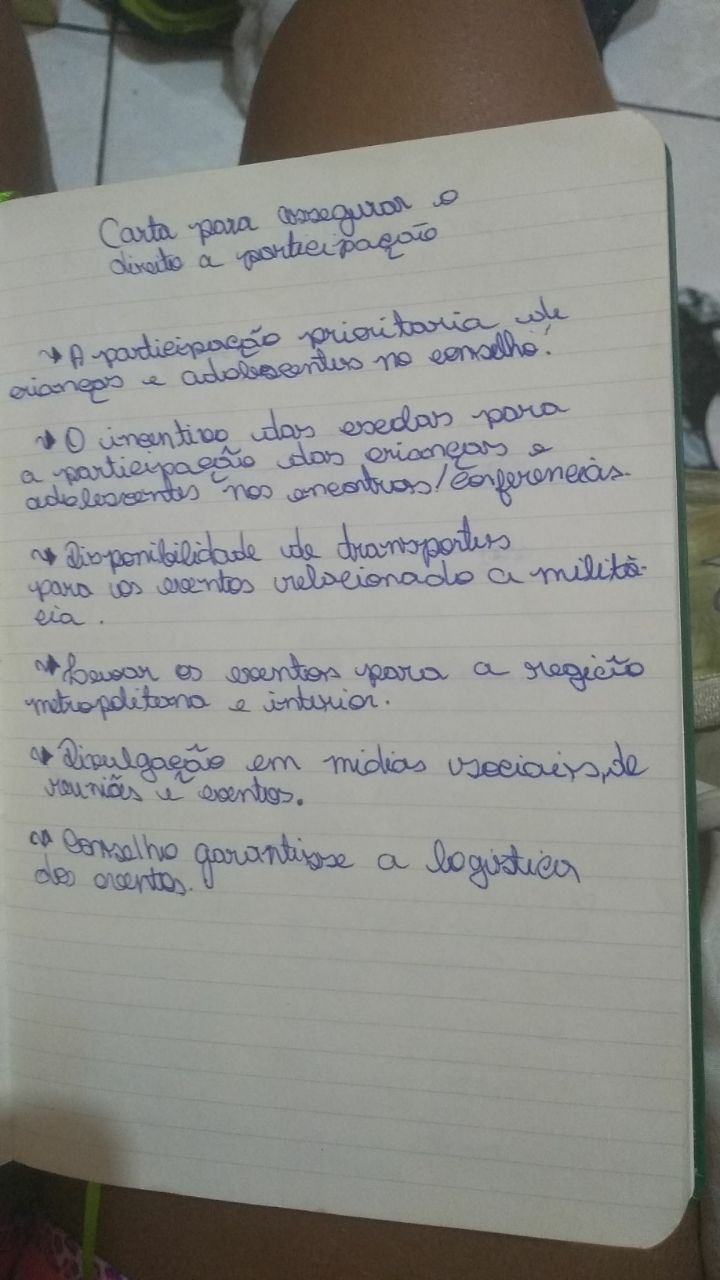 Carta para assegurar o
direito a participação
→ A participação prioritaria de
crianças e adolescentes no conselho.
→ O incentivo das escolas para
a participação das crianças e
adolescentes nos encontros/conferencias.
→ Disponibilidade de transportes
para os eventos relacionado a militâ-
cia.
→ Levar os eventos para a região
metropolitana e interior.
→ Divulgação em midias sociais, de
reuniões e eventos.
→ Conselho garantisse a logística
dos eventos.